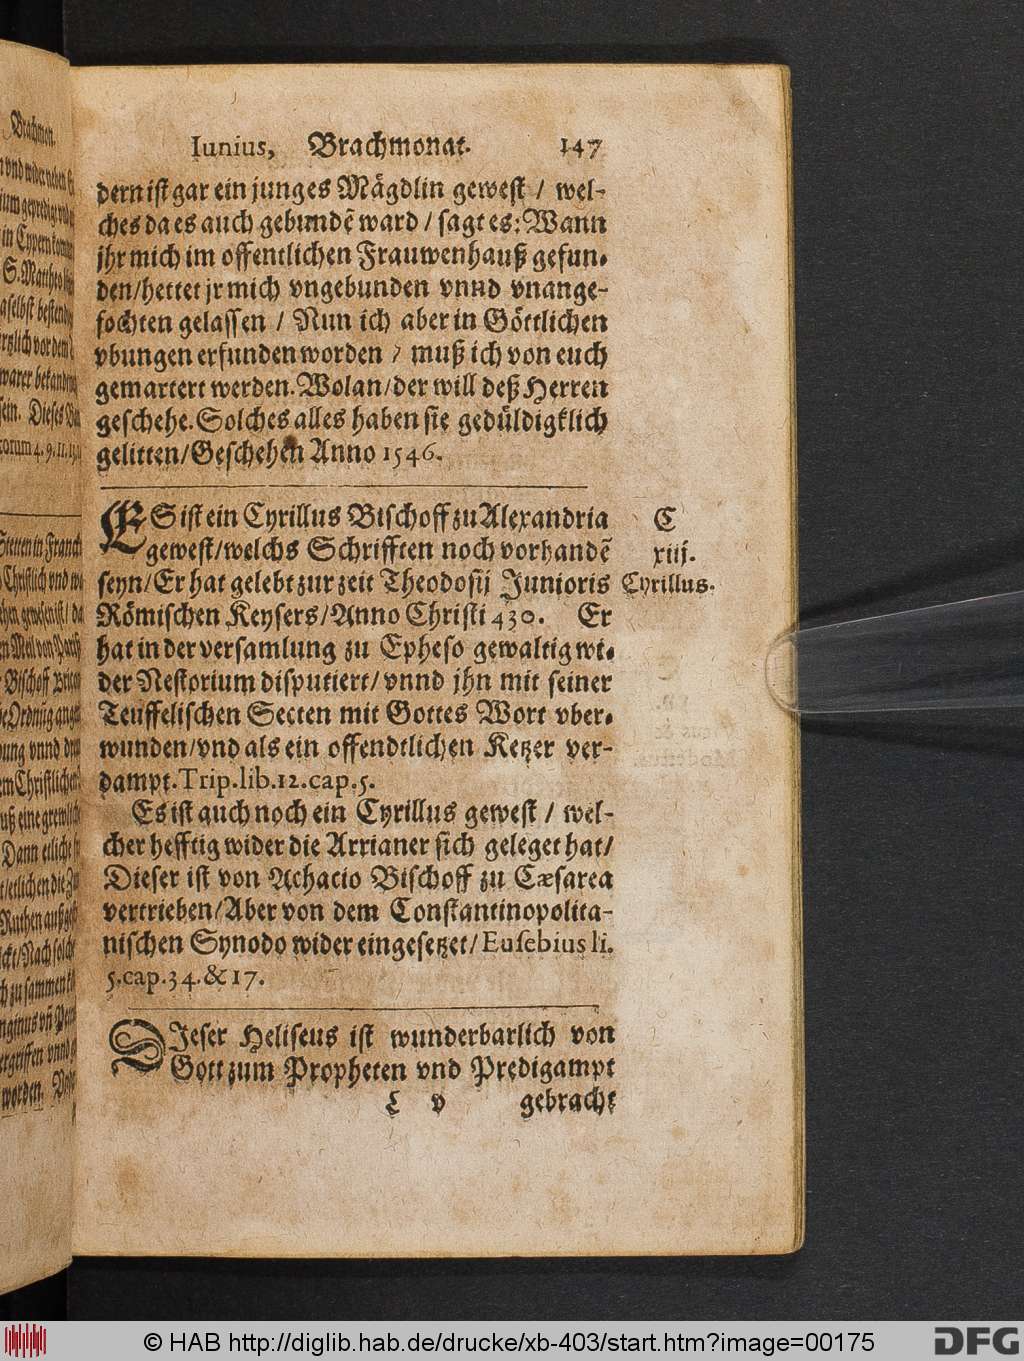 Iunius, Brachmonat. 147
dern ist gar ein junges Mägdlin gewest / wel-
ches da es auch gebundē ward / sagt es: Wann
jhr mich im offentlichen Frauwenhauß gefun-
den/hettet jr mich vngebunden vnnd vnange-
fochten gelassen / Nun ich aber in Göttlichen
vbungen erfunden worden / muß ich von euch
gemartert werden. Wolan/der will deß Herren
geschehe. Solches alles haben sie gedüldigklich
gelitten/Geschehen Anno 1546.
ES ist ein Cyrillus Bischoff zu Alexandria
gewest/welchs Schrifften noch vorhandē
seyn/Er hat gelebt zur zeit Theodosij Junioris
Römischen Keysers/Anno Christi 430. Er
hat in der versamlung zu Epheso gewaltig wi-
der Nestorium disputiert/vnnd jhn mit seiner
Teuffelischen Secten mit Gottes Wort vber-
wunden/vnd als ein offendtlichen Ketzer ver-
dampt. Trip.lib.12.cap.5.
C
xiij.
Cyrillus.
Es ist auch noch ein Cyrillus gewest / wel-
cher hefftig wider die Arrianer sich geleget hat/
Dieser ist von Achacio Bischoff zu Cæsarea
vertrieben/Aber von dem Constantinopolita-
nischen Synodo wider eingesetzet/Eusebius li.
5.cap.34.&17.
DIeser Heliseus ist wunderbarlich von
Gott zum Propheten vnd Predigampt
T v gebracht
© HAB http://diglib.hab.de/drucke/xb-403/start.htm?image=00175
DFG